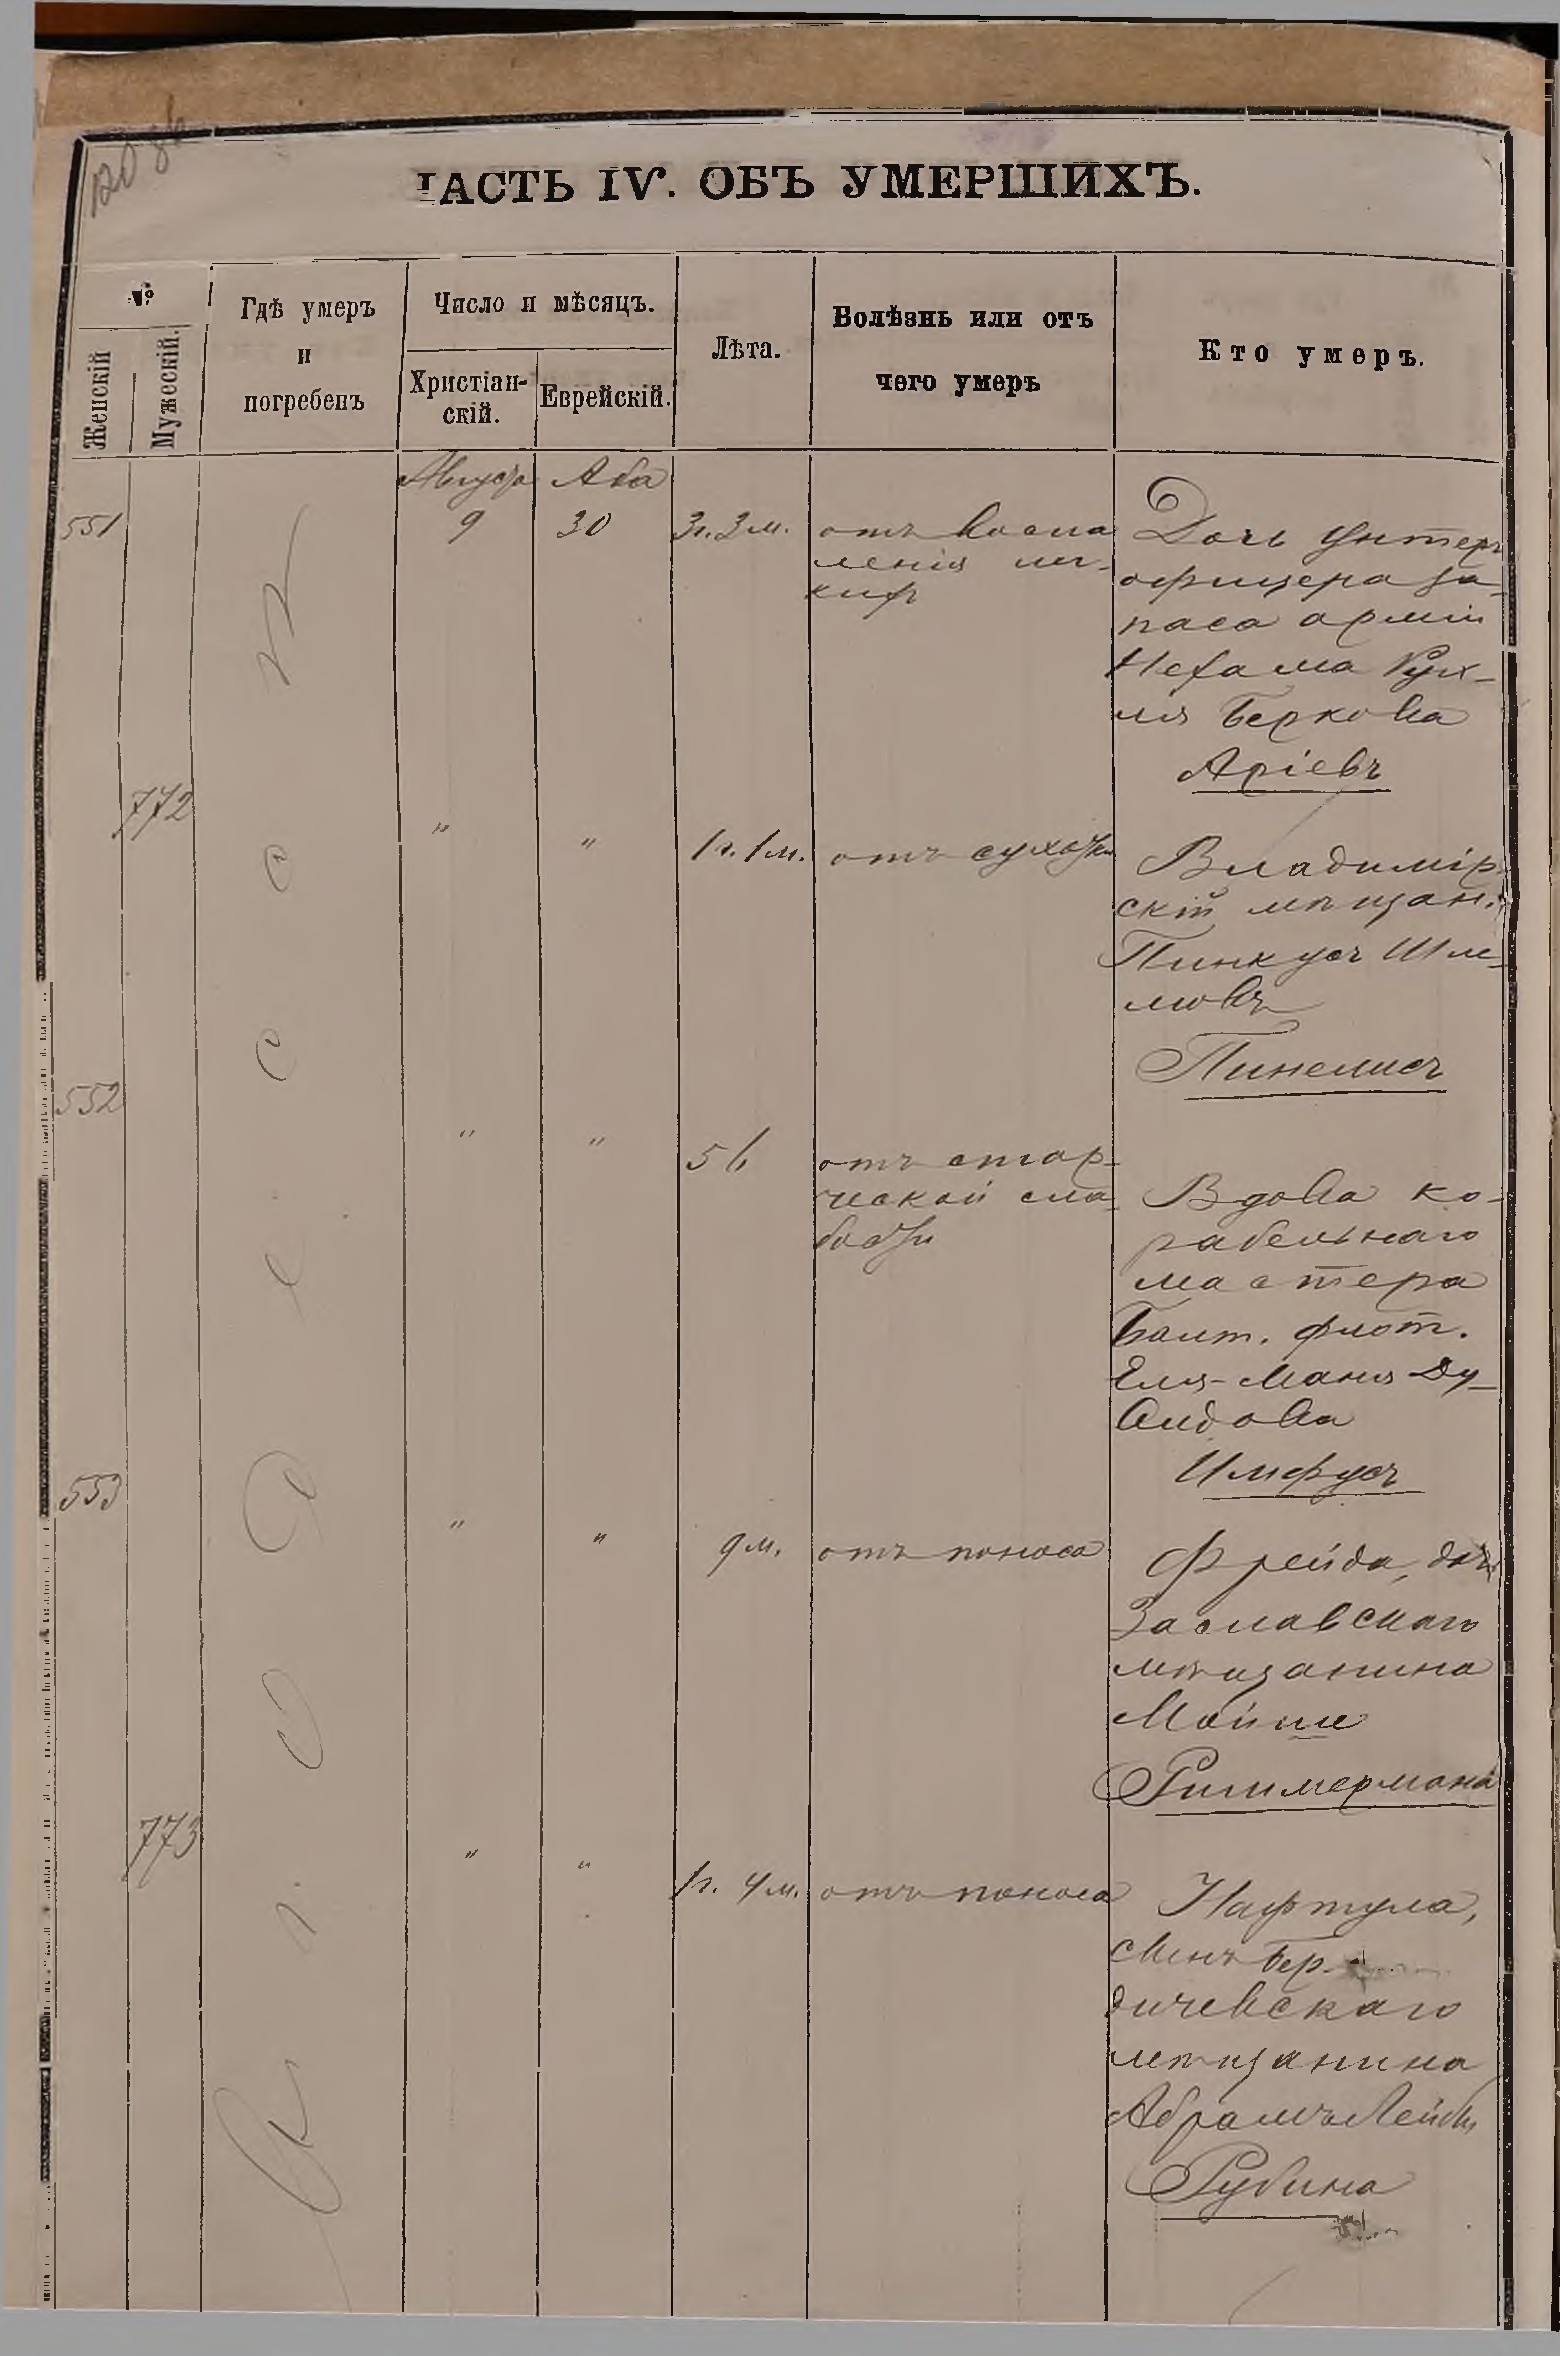 ЧАСТЬ IV. ОБЪ УМЕРШИХЪ.
№
Женскій
Мужескій.
Гдѣ умеръ
и
погребенъ
Число и мѣсяцъ.
Христіан-
скій.
Еврейскій.
Лѣта.
Болѣзнь или отъ
чего умеръ
Кто умеръ.
Августа Аба
551 9 30 3г. 3м.
отъ воспа
ленія лег-
кихъ
Дочь унтеръ
офицера за-
паса арміи
Нехама Рух-
ля Беркова
Аріевъ
772 " " 1г. 1м. отъ сухотки
Владимір
скій мѣщан.
Пинкусъ Шле-
мовъ
Пинелисъ
552 " "
отъ стар-
ческой сла
бости
Вдова ко-
рабельнаго
мастера
Балт. флот.
Еля-Маня Ду-
видова
553 " " 9м. отъ поноса
Фрейда, дочь
Заславскаго
мѣщанина
Мойше
773 " " 1г. 4м. отъ поноса
Нафтула,
сынъ Бер-
дичевскаго
мѣщанина
Абрамъ Лейбы
Рубина
Одесса